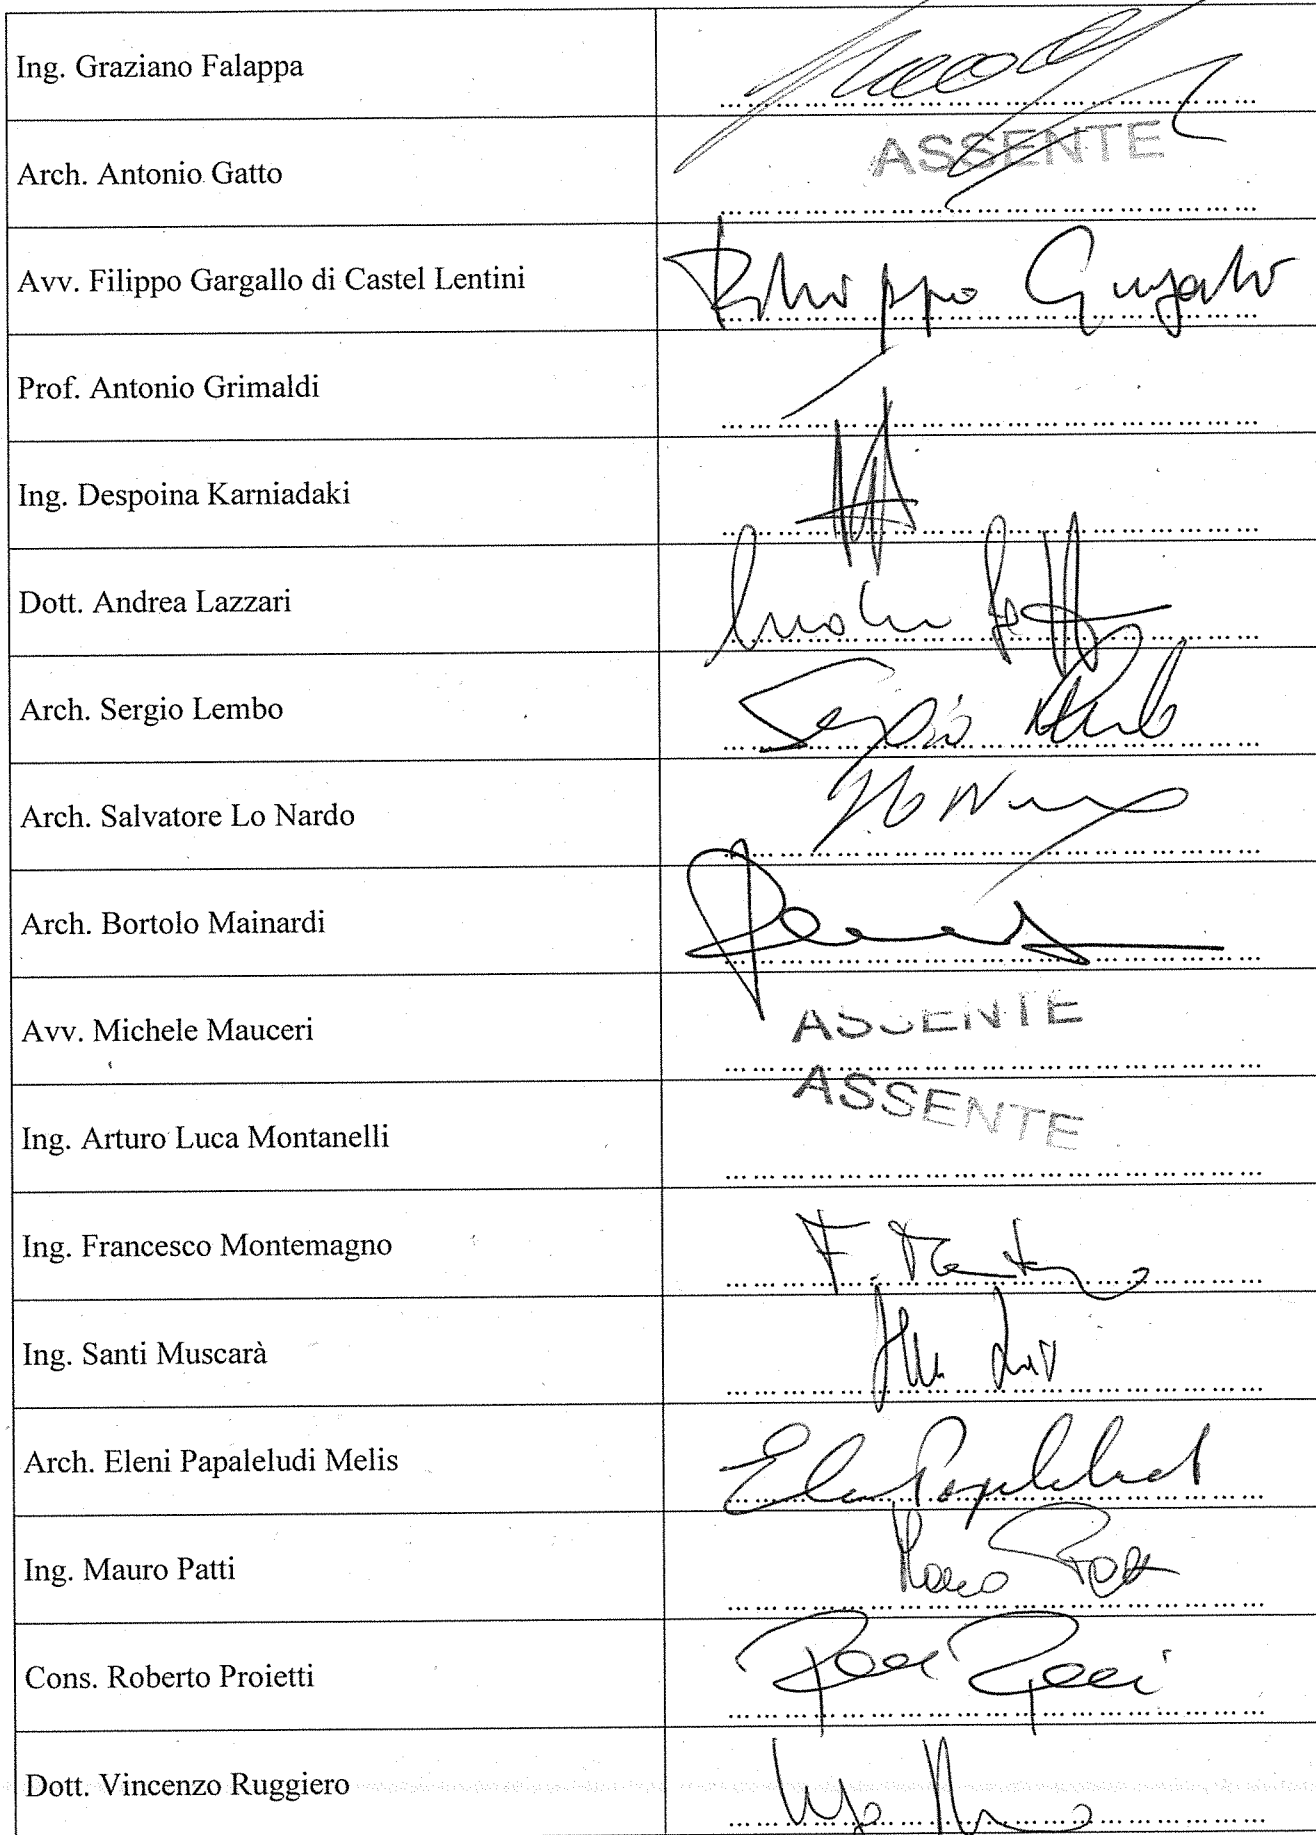 Ing. Graziano Falappa
Arch. Antonio Gatto
ASSENTE
Avv. Filippo Gargallo di Castel Lentini
Filippo Gargallo
Prof. Antonio Grimaldi
Ing. Despoina Karniadaki
Dott. Andrea Lazzari
Arch. Sergio Lembo
Sergio Lembo
Arch. Salvatore Lo Nardo
Arch. Bortolo Mainardi
Avv. Michele Mauceri
ASSENTE
Ing. Arturo Luca Montanelli
ASSENTE
Ing. Francesco Montemagno
Ing. Santi Muscarà
Arch. Eleni Papaleludi Melis
Ing. Mauro Patti
Mauro Patti
Cons. Roberto Proietti
Dott. Vincenzo Ruggiero